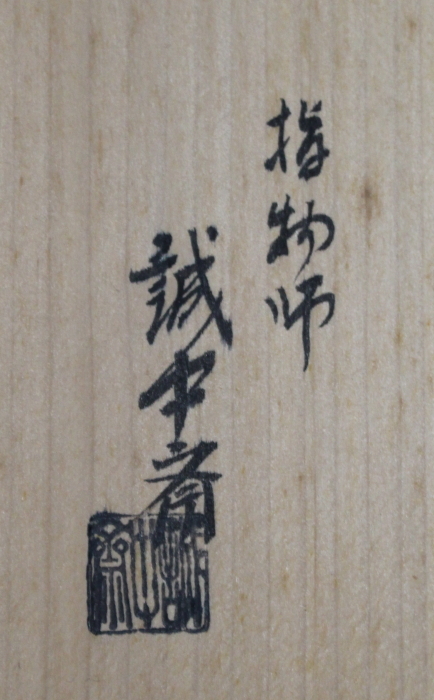 指物師
誠中斎